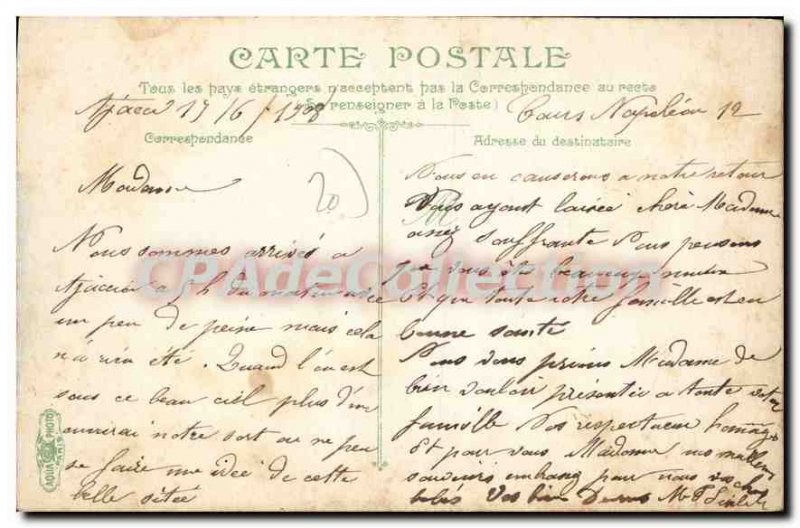 CARTE POSTALE
Tous les pays étrangers n'acceptent pas la Correspondance au recto
(Se renseigner à la Poste)
17/6/1908
Cours Napoléon 12
Correspondance
Adresse du destinataire
20
Madame
Nous sommes arrivés a
Ajaccio a 5 h du matin avec
un peu de peine mais cela
n'a rien été. Quand l'on est
sous ce beau ciel plus d'un
notre sort on ne peu
se faire une idée de cette
belle
Nous en causerons a notre retour
Vous ayant laisée chere Madame
assez souffrante Nous pensons
que vous êtes beaucoup mieux
Et que toute votre famille est en
bonne santé
Nous vous prions Madame de
bien vouloir présenter a toute votre
famille Nos respectueux hommages
Et pour vous Madame nos meilleurs
souvenirs
Vos bien
AQUA PHOTO
PARIS
CPAdeCollection